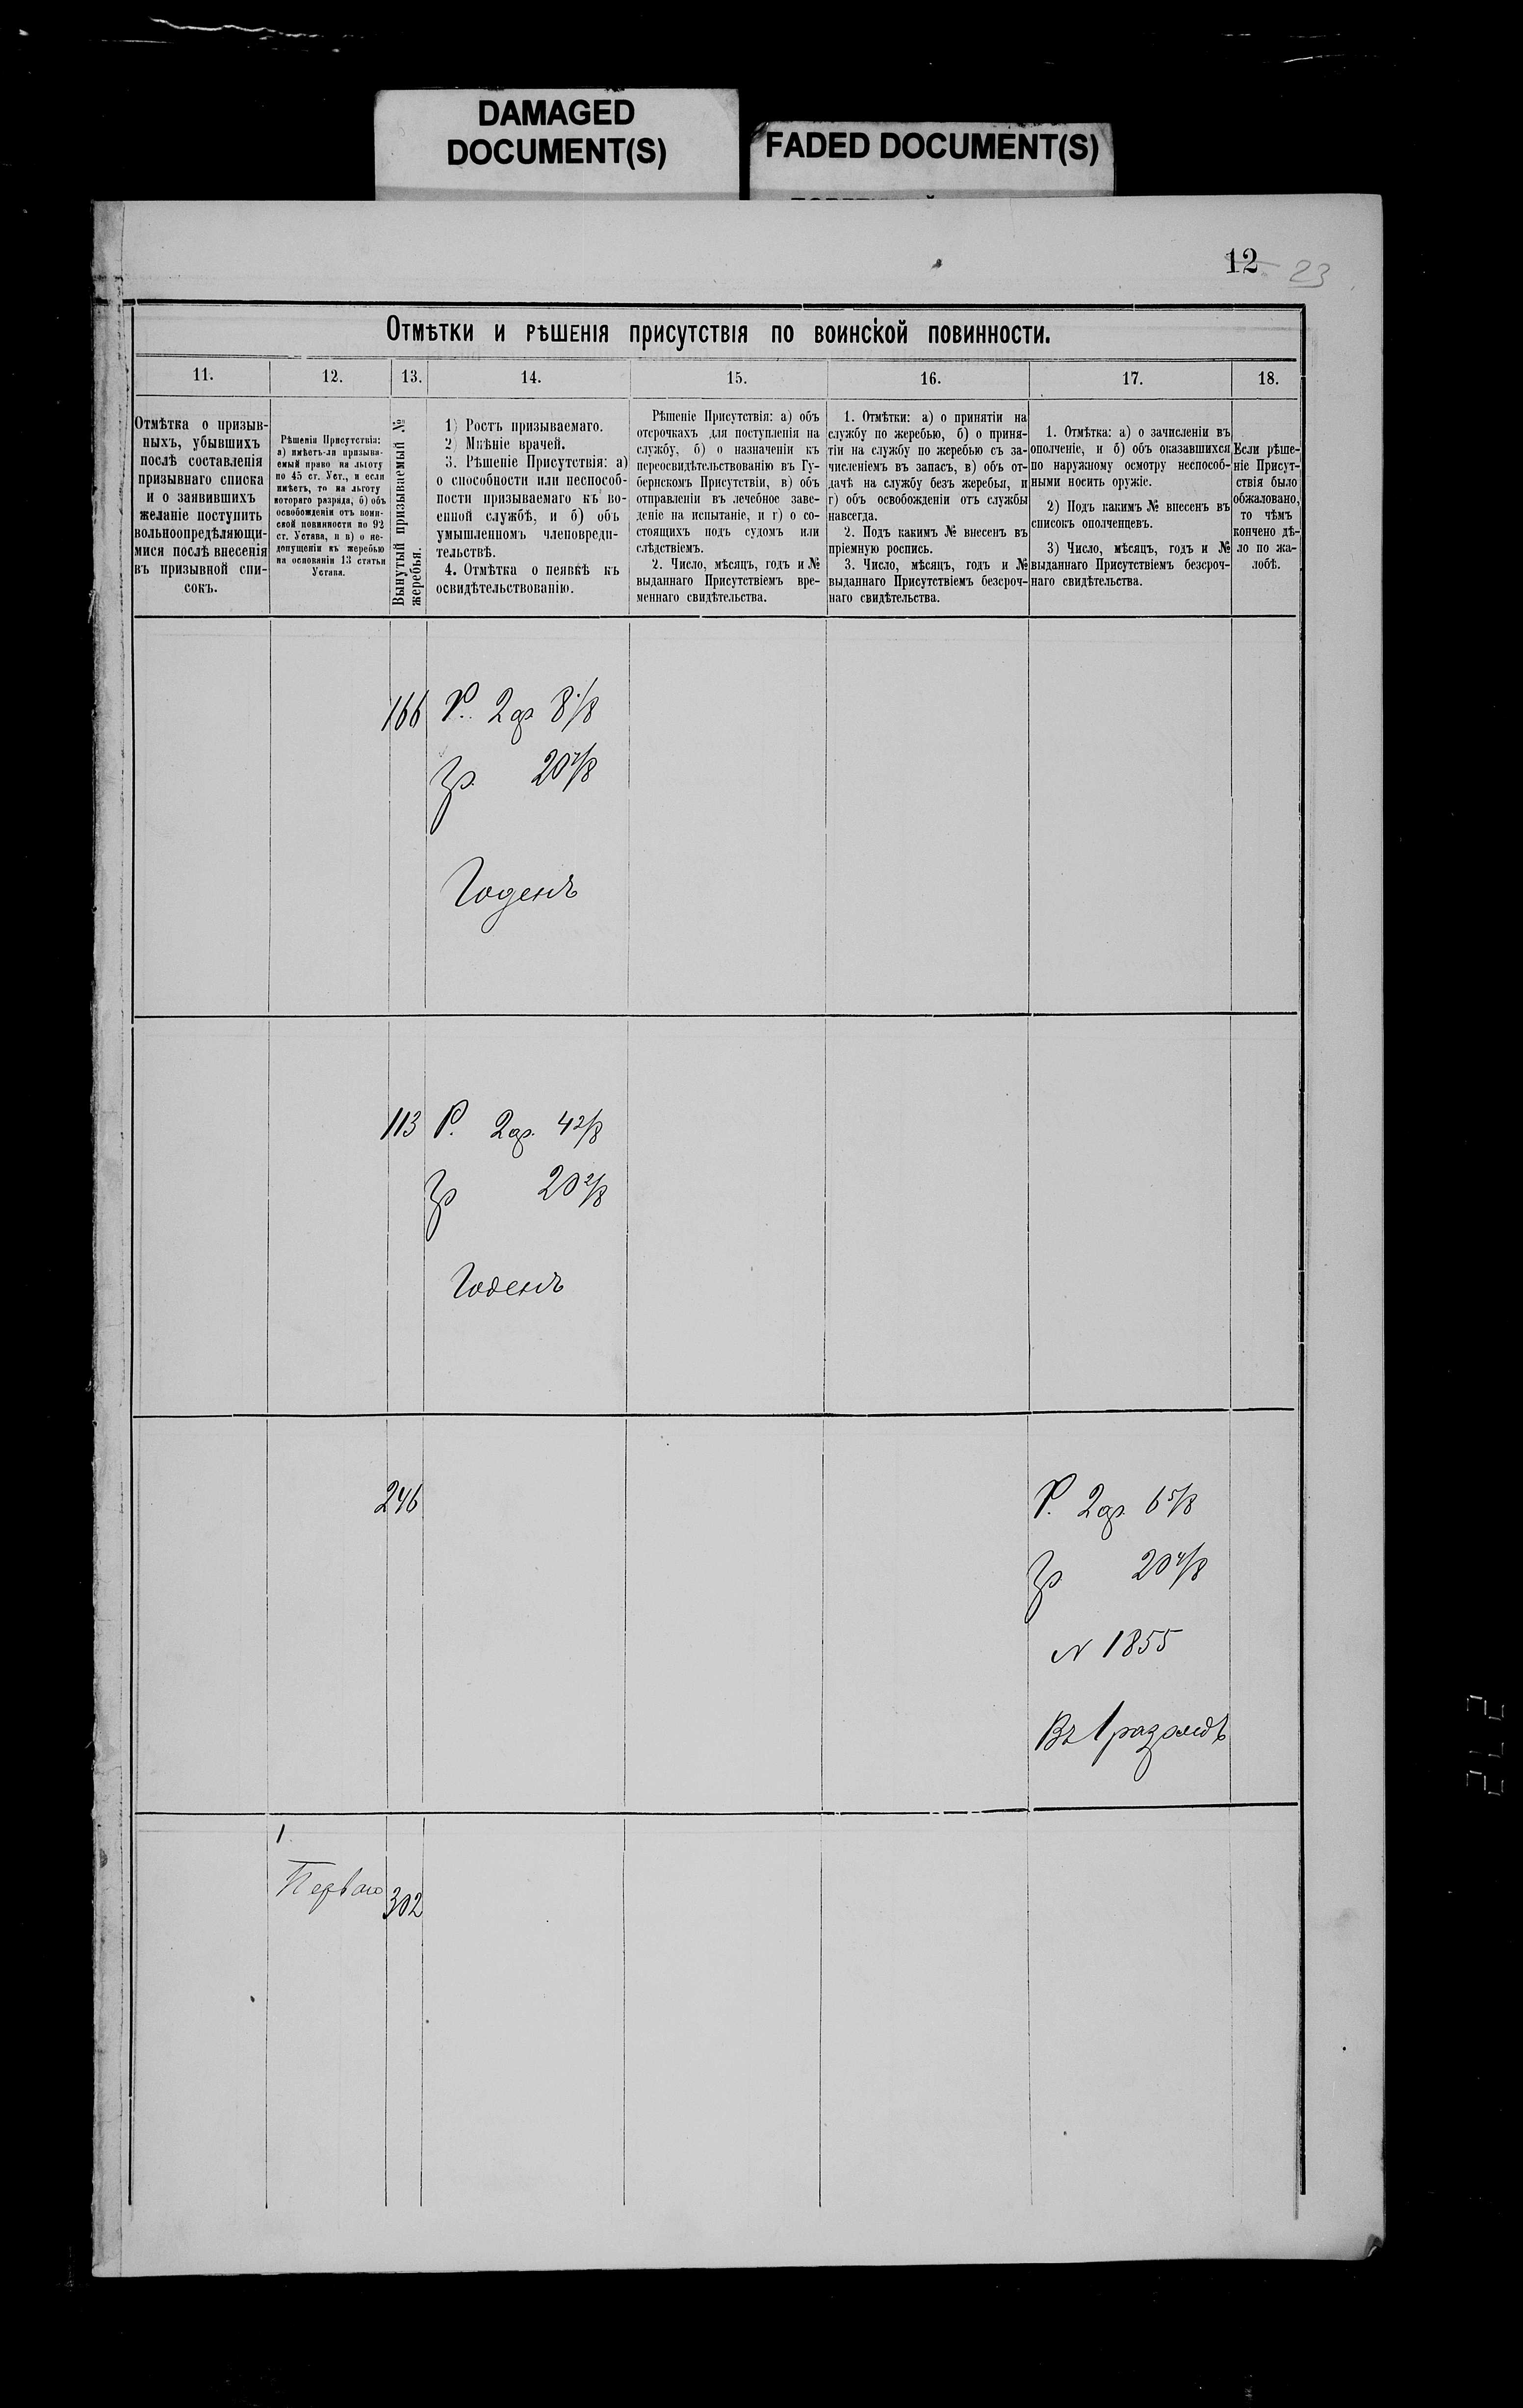 DAMAGED
DOCUMENT(S)
FADED DOCUMENT(S)
12 23
Отмѣтки и рѣшенія присутствія по воинской повинности.
11. 12. 13. 14. 15. 16. 17. 18.
Отмѣтка о призыв-
ныхъ, убывшихъ
послѣ составленія
призывнаго списка
и о заявившихъ
желаніе поступить
вольноопредѣляющи-
мися послѣ внесенія
въ призывной спи-
сокъ.
Рѣшенія Присутствія:
а) имѣетъ-ли призыва-
емый право на льготу
по 45 ст. Уст., и если
имѣетъ, то на льготу
котораго разряда, б) объ
освобожденіи отъ воин-
ской повинности по 92
ст. Устава, и в) о не-
допущеніи къ жеребью
на основаніи 13 статьи
Устава.
Вынутый призываемый №
жеребья.
1) Ростъ призываемаго.
2) Мнѣніе врачей.
3. Рѣшеніе Присутствія: а)
о способности или неспособ-
ности призываемаго къ во-
енной службѣ, и б) объ
умышленномъ членовреди-
тельствѣ.
4. Отмѣтка о неявкѣ къ
освидѣтельствованію.
Рѣшеніе Присутствія: а) объ
отсрочкахъ для поступленія на
службу, б) о назначеніи къ
переосвидѣтельствованію въ Гу-
бернскомъ Присутствіи, в) объ
отправленіи въ лечебное заве-
деніе на испытаніе, и г) о со-
стоящихъ подъ судомъ или
слѣдствіемъ.
2. Число, мѣсяцъ, годъ и №
выданнаго Присутствіемъ вре-
меннаго свидѣтельства.
1. Отмѣтки: а) о принятіи на
службу по жеребью, б) о приня-
тіи на службу по жеребью съ за-
численіемъ въ запасъ, в) объ от-
дачѣ на службу безъ жеребья, и
г) объ освобожденіи отъ службы
навсегда.
2. Подъ какимъ № внесенъ въ
пріемную роспись.
3. Число, мѣсяцъ, годъ и №
выданнаго Присутствіемъ безсроч-
наго свидѣтельства.
1. Отмѣтка: а) о зачисленіи въ
ополченіе, и б) объ оказавшихся
по наружному осмотру неспособ-
ными носить оружіе.
2) Подъ какимъ № внесенъ въ
списокъ ополченцевъ.
3) Число, мѣсяцъ, годъ и №
выданнаго Присутствіемъ безсроч-
наго свидѣтельства.
Если рѣше-
ніе Присут-
ствія было
обжаловано,
то чѣмъ
кончено дѣ-
ло по жа-
лобѣ.
166 Р. 2 ар 8 1/8
гр. 20 7/8
Годенъ
113 Р. 2 ар. 4 2/8
гр 20 2/8
Годенъ
246 Р. 2 ар. 6 5/8
гр 20 4/8
N 1855
Въ 1 разрядъ
1.
Перваго 302
212